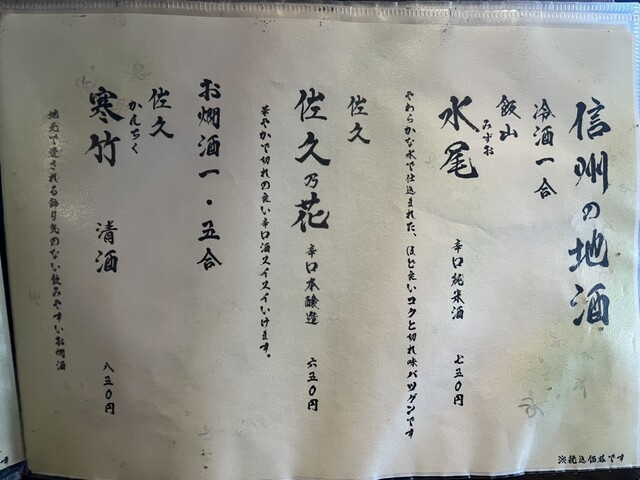 信州の地酒
冷酒一合
飯山
みずお
水尾 辛口純米酒 七五0円
やわらかな水で仕込まれた、ほど良いコクと切れ味バツグンです
佐久
佐久乃花 辛口本醸造 六五0円
華やかで切れの良い辛口酒スイスイいけます。
お燗酒一・五合
佐久
かんちく
寒竹 清酒 八五0円
地元で愛される飾り気のない飲みやすいお燗酒
※税込価格です